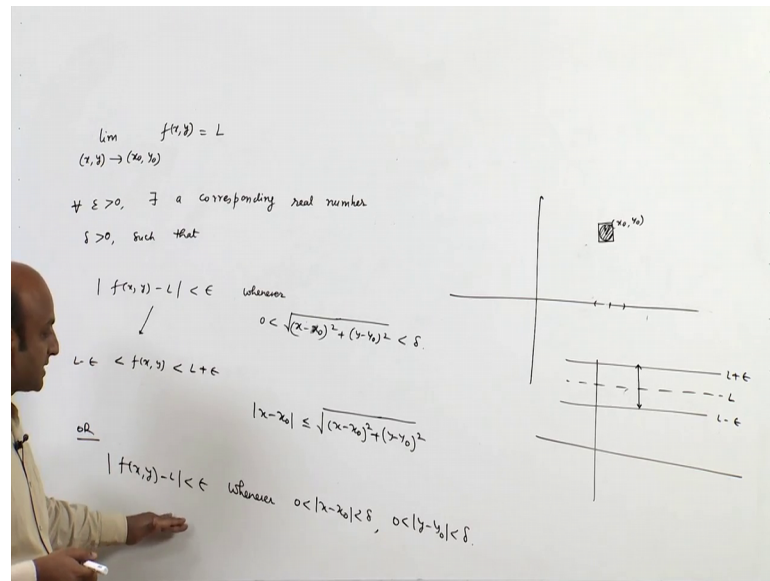 lim f(x,y) = L
(x,y) → (x₀, y₀)
∀ ε >0, ∃ a corresponding real number
δ >0, such that
| f(x,y) - L | < ε whenever
0 < √(x-x₀)² + (y-y₀)² < δ.
L-ε < f(x,y) < L+ε
|x-x₀| ≤ √(x-x₀)²+(y-y₀)²
OR
| f(x,y) - L | < ε whenever 0<|x-x₀|<δ, 0<|y-y₀|<δ.
(x₀, y₀)
L+ε
L
L-ε